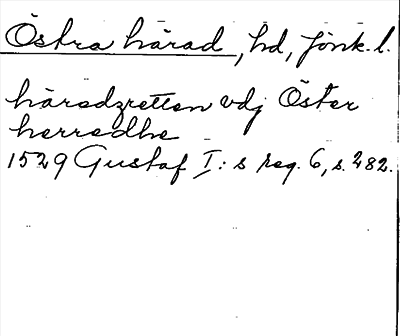 Östra härad, hd, Jönk. l.
häradzretten vdj Öster
herredhe
1529 Gustaf I:s reg. 6, s. 282.